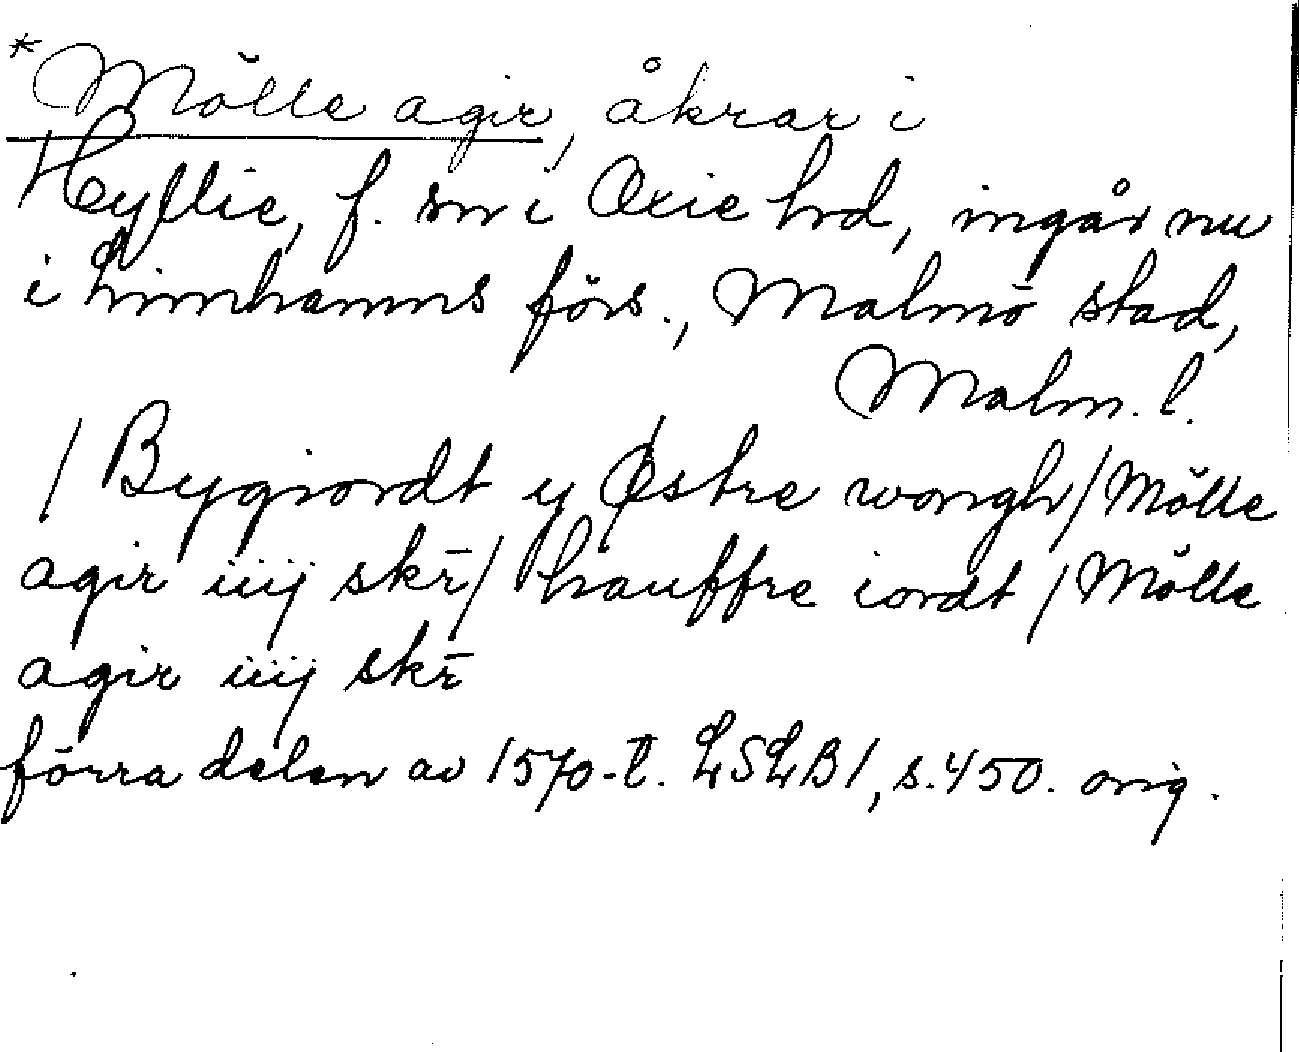 *Mölle agir, åkrar i
Hyllie, f. sn i Oxie hrd, ingår nu
i Limhamns förs., Malmö stad,
Malm. l.
/ Bygiordt y Østre wongh / Mölle
agir iiij skr̄ / hauffre iordt / Mölle
agir iiij skr̄
förra delen av 1570-t. LSLB1, s. 450. orig.